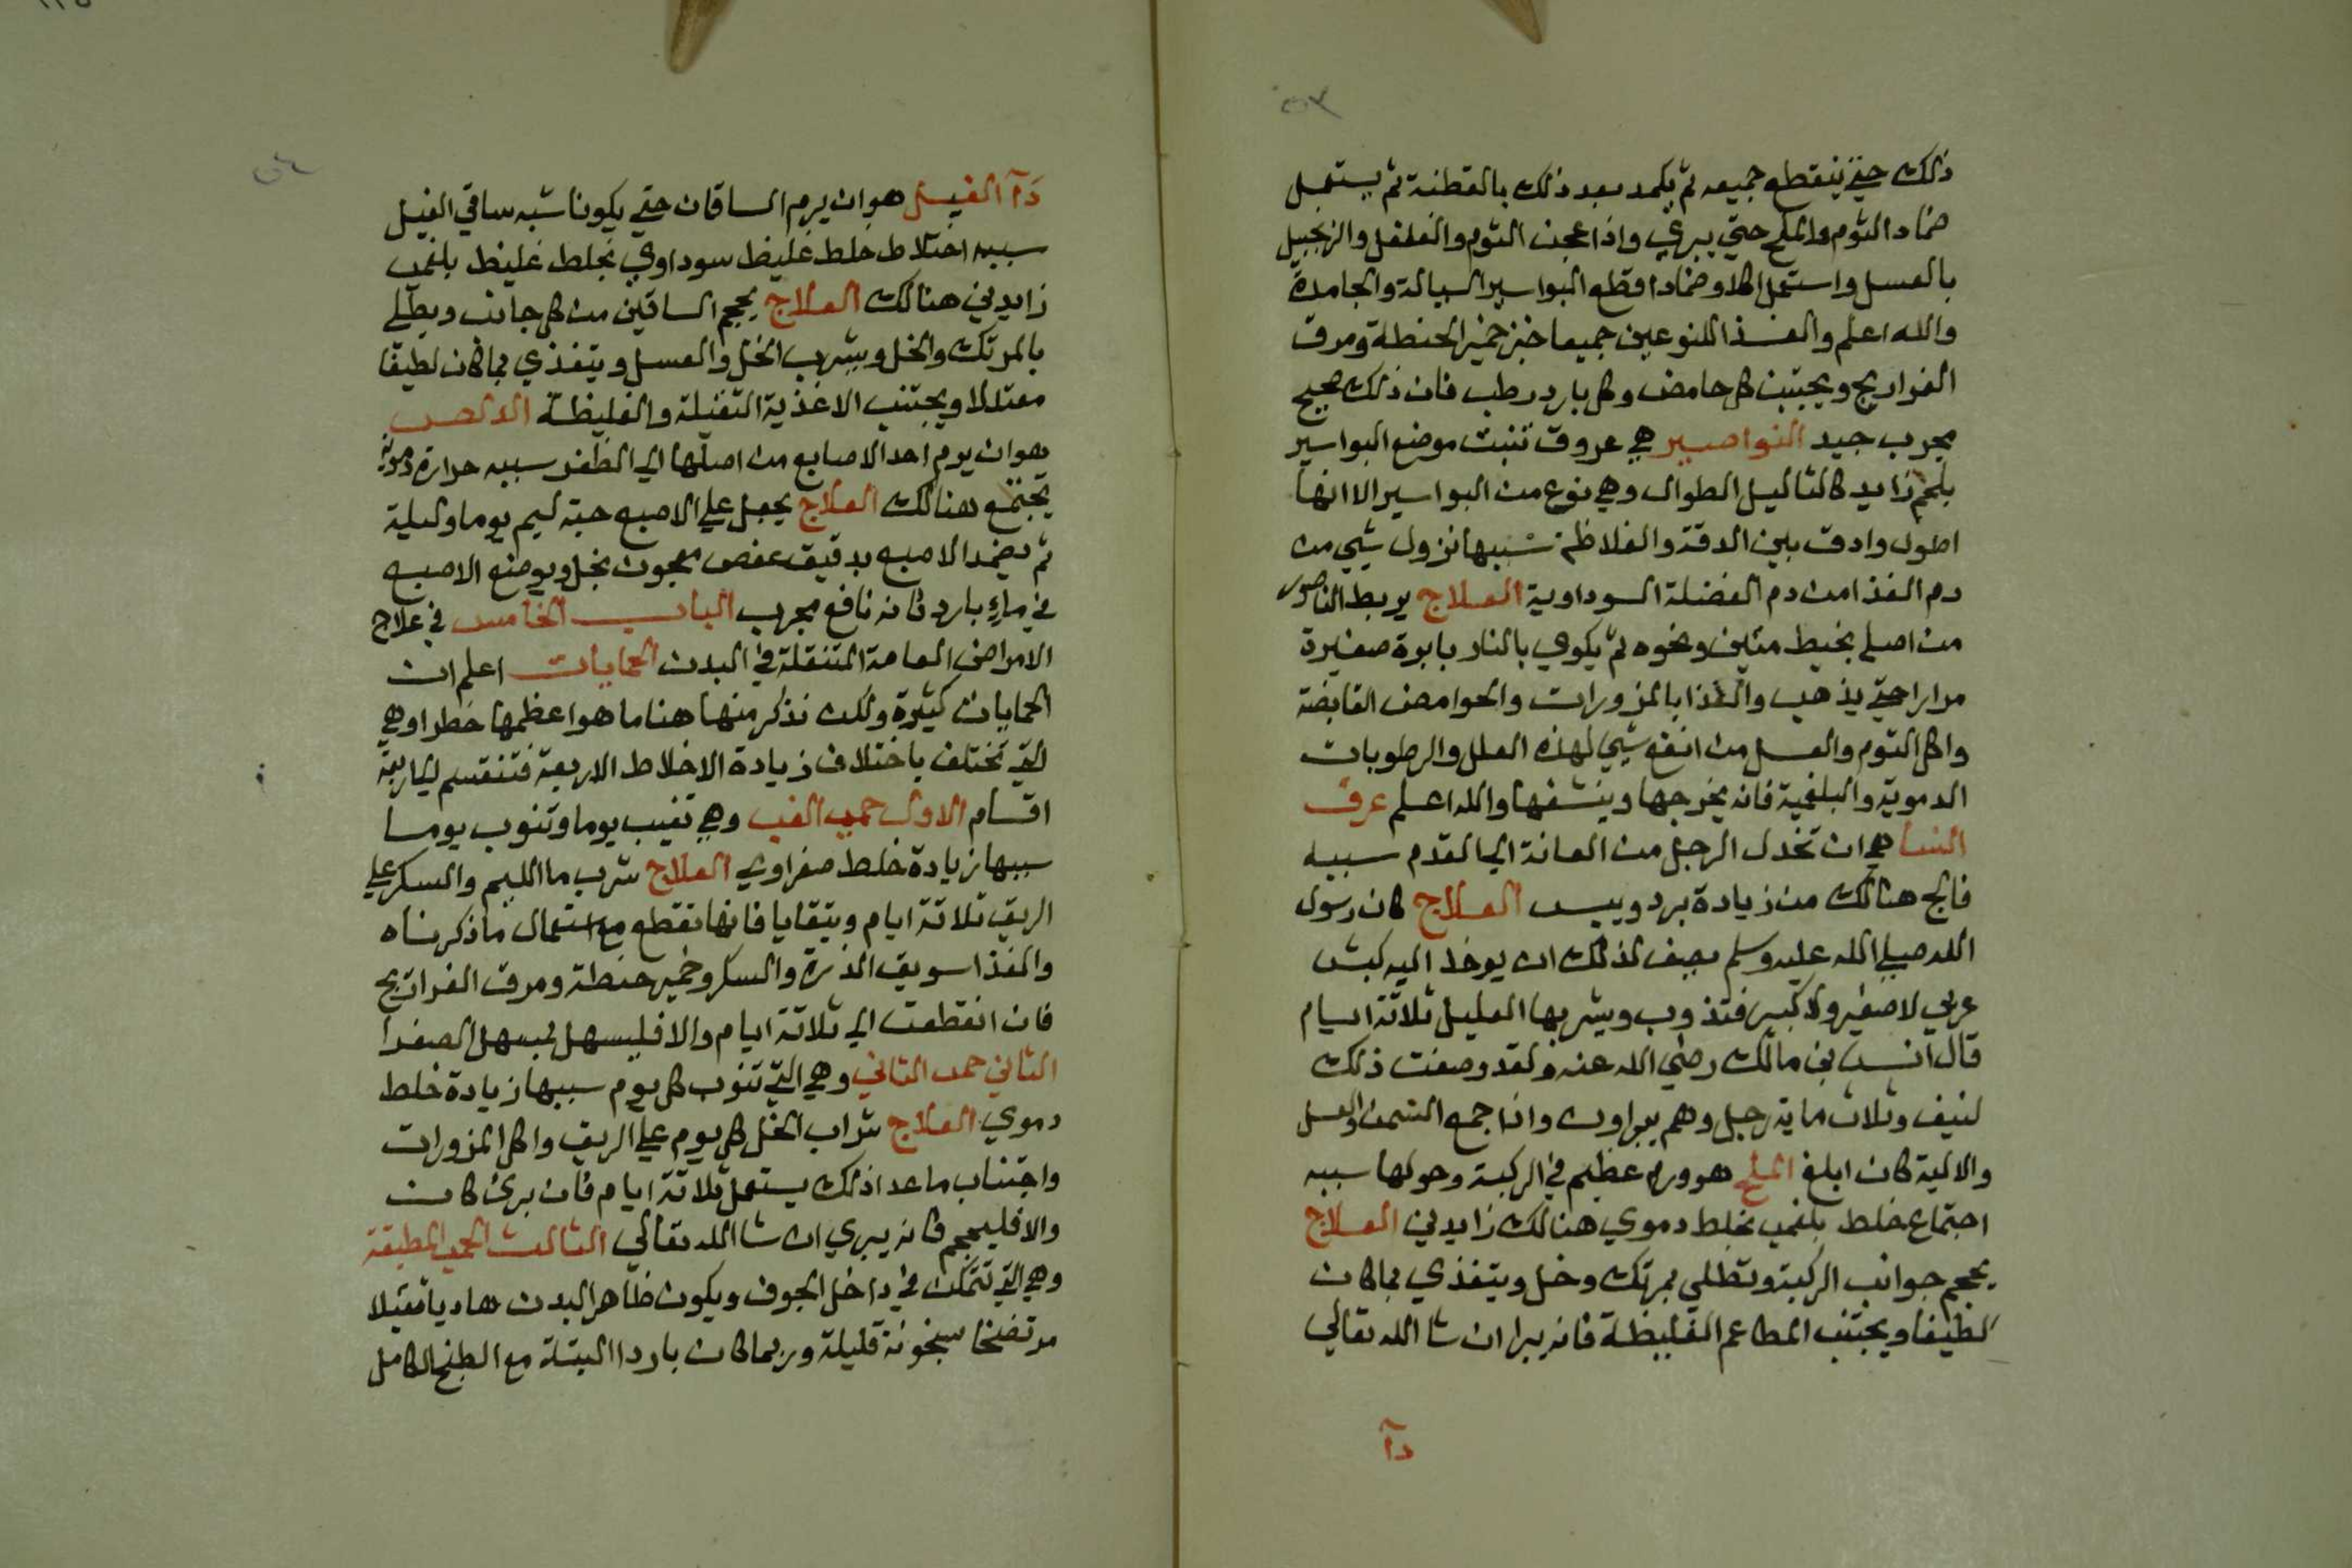 ذلك حتي ينقطع جميعه ثم يكمد بعد ذلك بالقطنة ثم يستعمل
ضماد الثوم والملح حتي يبري واذا عجن الثوم والفلفل والزنجبيل
بالعسل واستعمل اكلا وضمادا قطع البواسير السيالة والجامدة
والله اعلم والغذا للنوعين جميعا خبز خمير الحنطة ومرق
الفراريج ويجتنب كل حامض وكل بارد رطب فان ذلك صحيح
مجرب جيد النواصير هي عروق تنبت موضع البواسير
بلحم زايد كالثاليل الطوال وهي نوع من البواسير الا انها
اطول وادق بين الدقة والغلاظة سببها نزول شيي من
دم الغذا من دم الفضلة السوداوية العلاج يربط الناصور
من اصله بخيط متين ونحوه ثم يكوي بالنار بابرة صغيرة
مرارا حتي يذهب والغذا بالمزورات والحوامض القابضة
واكل الثوم والعسل من انفع شيي لهذه العلل والرطوبات
الدموية والبلغمية فانه يخرجها وينشفها والله اعلم عرق
النسا هي ان تخدل الرجل من العانة الي القدم سببه
فالج هنالك من زيادة برد ويبس العلاج كان رسول
الله صلي الله عليه وسلم يصف لذلك ان يوخذ الية كبش
عربي لا صغير ولا كبير فتذوب ويشربها العليل ثلاثة ايام
قال انس بن مالك رضي الله عنه ولقد وصفت ذلك
لنيف وثلاث ماية رجل وهم يبراون واذا جمع السمن والعسل
والالية كان ابلغ الملح هو ورم عظيم في الركبة وحولها سببه
اجتماع خلط بلغمي بخلط دموي هنالك زايدين العلاج
يحجم جوانب الركبة وتطلي بمرتك وخل ويتغذي بما كان
لطيفا ويجتنب المطاعم الغليظة فانه يبرا ان شا الله تعالي
دآ
دآ الفيل هو ان يرم الساقان حتي يكونا شبه ساقي الفيل
سببه اختلاط خلط غليظ سوداوي بخلط غليظ بلغمي
زايدين هنالك العلاج يحجم الساقين من كل جانب ويطلي
بالمرتك والخل ويشرب الخل والعسل ويتغذي بما كان لطيفا
معتدلا ويجتنب الاغذية الثقيلة والغليظة
وهو ان يرم احد الاصابع من اصلها الي الظفر سببه حرارة دموية
تجتمع هنالك العلاج يجعل علي الاصبع حبة ليم يوما وليلة
ثم يضمد الاصبع بدقيق عفص معجون بخل ويوضع الاصبع
في ماء بارد فانه نافع مجرب الباب الخامس في علاج
الامراض العامة المتنقلة في البدن الحمايات اعلم ان
الحمايات كثيرة ولكن نذكر منها هنا ما هو اعظمها خطرا وهي
التي تختلف باختلاف زيادة الاخلاط الاربعة فتنقسم الي اربعة
اقسام الاول حمي الغب وهي تغيب يوما وتنوب يوما
سببها زيادة خلط صفراوي العلاج شرب ما الليم والسكر علي
الريق ثلاثة ايام ويتقايا فانها تقطع مع استعمال ما ذكرناه
والغذا سويق الذرة والسكر وخمير حنطة ومرق الفراريج
فان انقطعت الي ثلاثة ايام والا فليسهل بمسهل الصفرا
الثاني حمي الثاني وهي التي تنوب كل يوم سببها زيادة خلط
دموي العلاج شراب الخل كل يوم علي الريق واكل المزورات
واجتناب ما عدا ذلك يستعمل ثلاثة ايام فان بري كان
والا فليحجم فانه يبري ان شا الله تعالي الثالث الحمي المطبقة
وهي التي تتمكن في داخل الجوف ويكون ظاهر البدن هاديا ثقيلا
مرتضخا سخونة قليلة وربما كان باردا البتة مع الطبخ الكامل